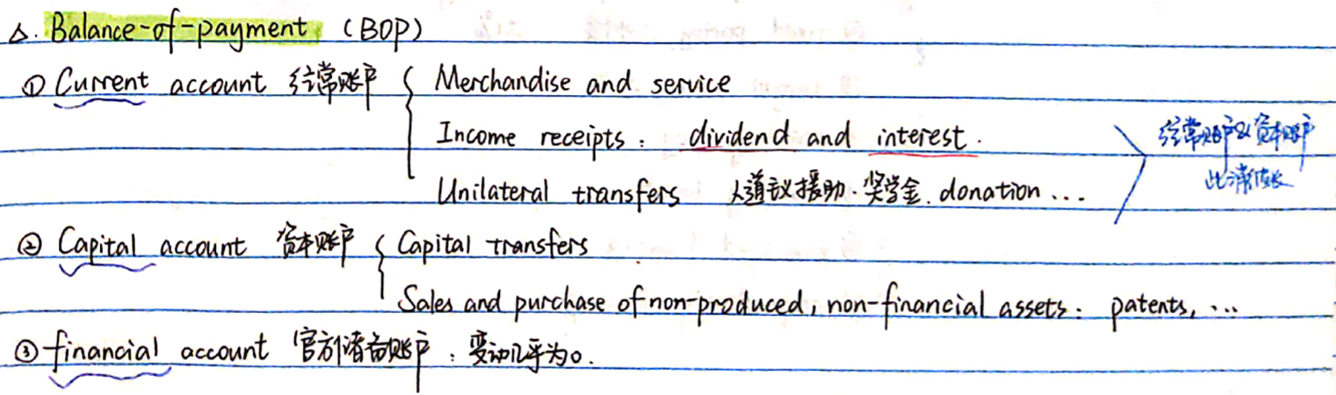 △. Balance-of-payment (BOP)
① Current account 经常账户 { Merchandise and service
Income receipts: dividend and interest.
经常账户&资本账户
此消彼长
Unilateral transfers 人道主义援助. 奖学金. donation ...
② Capital account 资本账户 { Capital transfers
Sales and purchase of non-produced, non-financial assets: patents, ...
③ financial account 官方储备账户: 变动几乎为0.